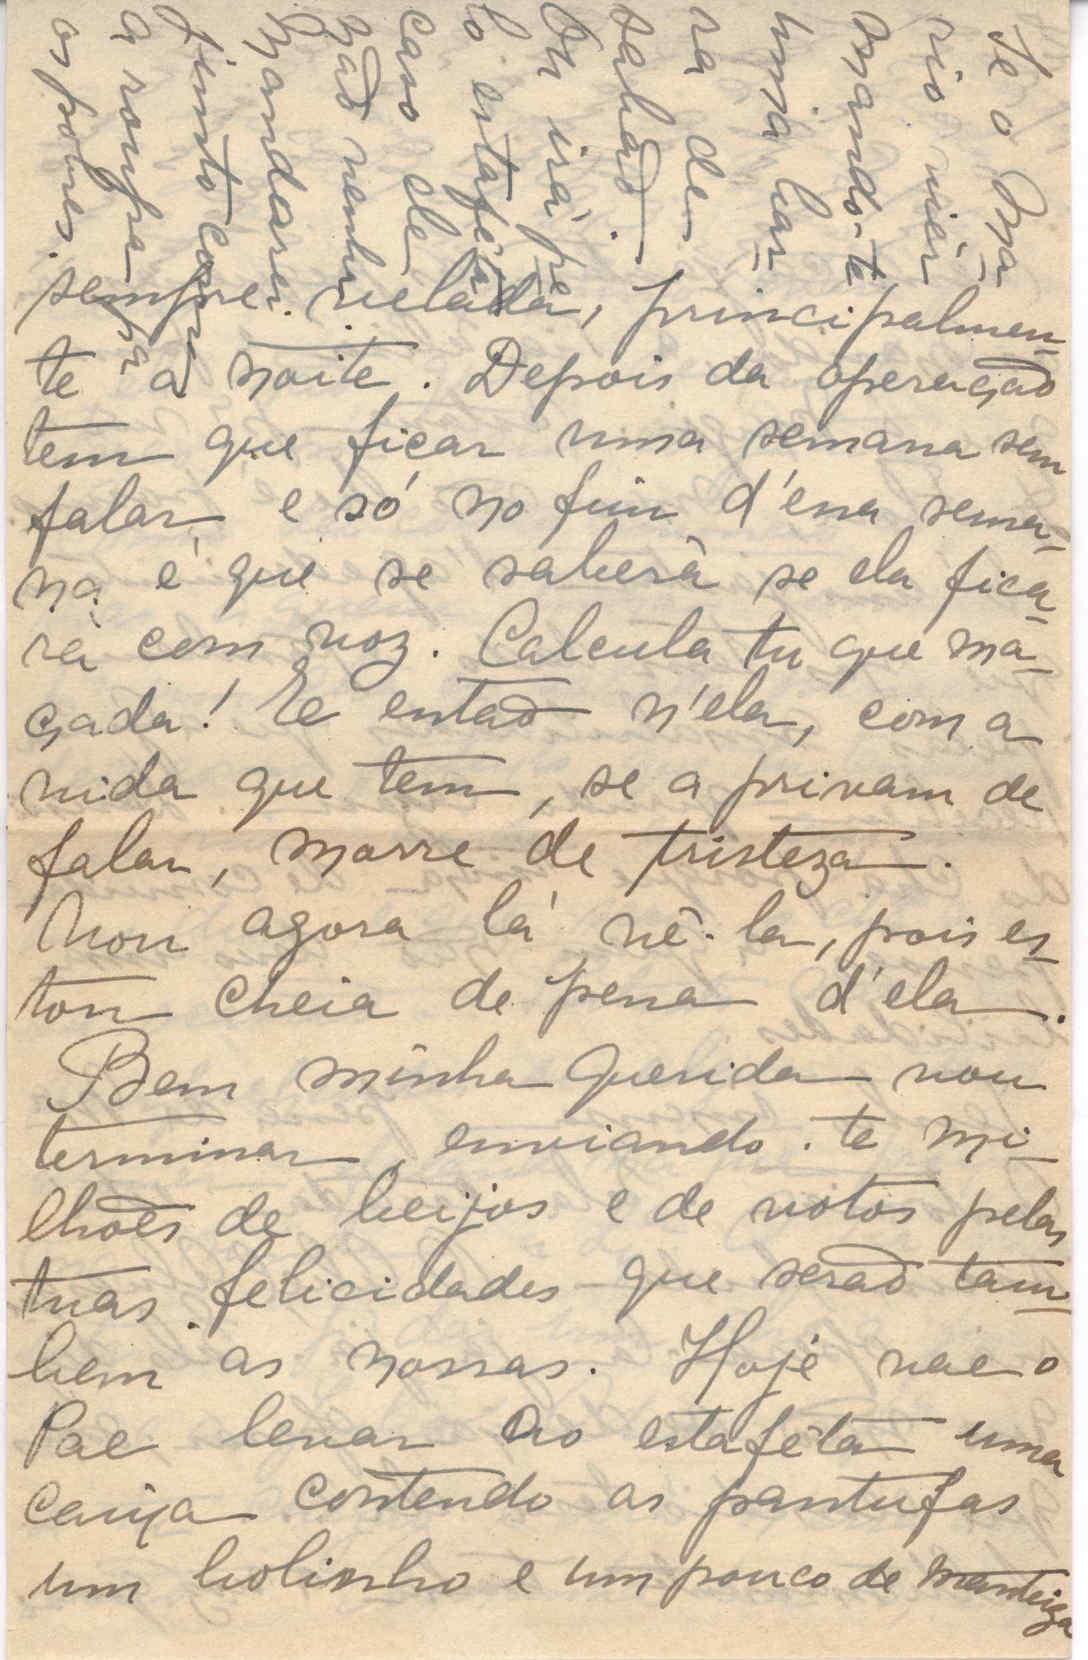 sempre velada, principalmen-
te á noite. Depois da operação
tem que ficar uma semana sem
falar e só no fim d'essa sema-
na é que se saberá se ela fica-
rá com voz. Calcula tu que ma-
çada! E então n'ela, com a
vida que tem, se a privam de
falar, morre de tristeza.
Vou agora lá vê-la, pois es-
tou cheia de pena d'ela.
Bem minha querida vou
terminar, enviando-te mi-
lhões de beijos e de votos pelas
tuas felicidades que serão tam-
bem as nossas. Hoje vae o
Pae levar ao estafêta uma
caixa contendo as pantufas
um bolinho e um pouco de manteiga
Se o Ma-
rio viér
mando-te
uma bar-
ra de
sabão.
Ou irá pe-
lo estafêta
caso ele
não venha
Mandarei
junto com
a roupa p'ra
os pobres.